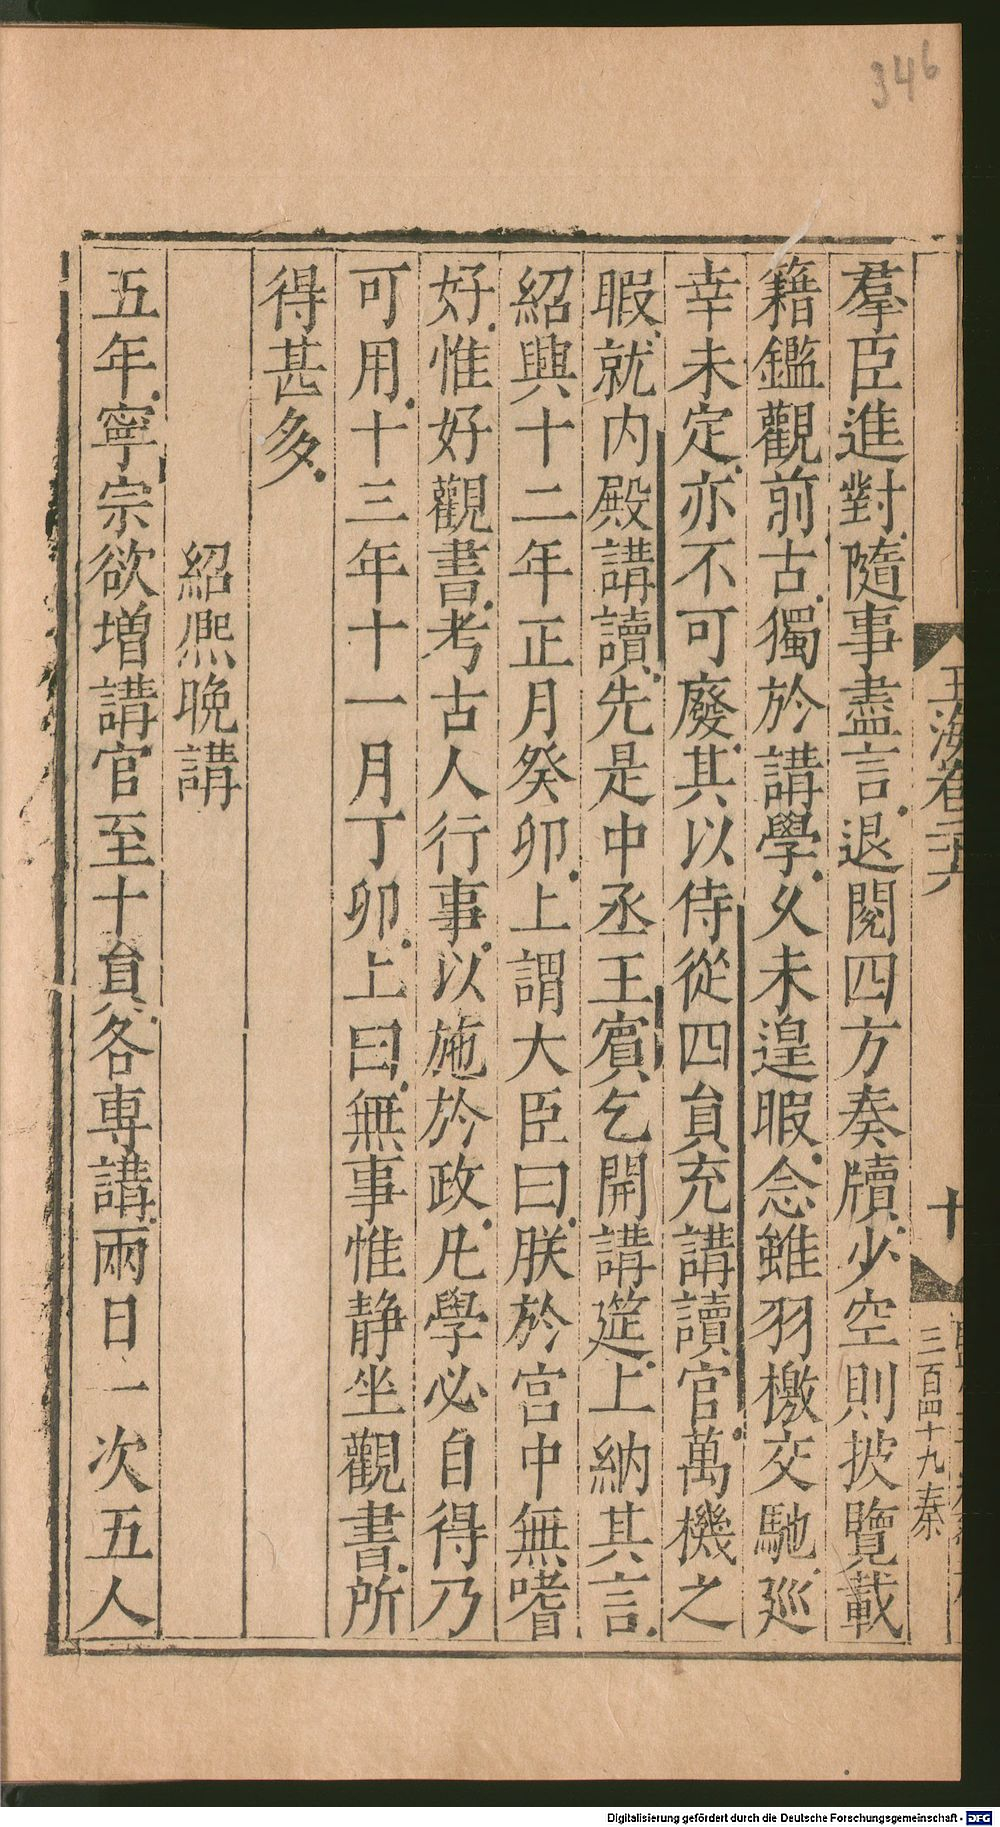 346
玉海卷二十六
十
三百四十九秦
羣臣進對隨事盡言退閱四方奏牘少空則披覽載
籍鑑觀前古獨於講學久未遑暇念雖羽檄交馳廵
幸未定亦不可廢其以侍從四貟充講讀官萬機之
暇就内殿講讀先是中丞王賔乞開講筵上納其言
紹興十二年正月癸卯上謂大臣曰朕於宫中無嗜
好惟好觀書考古人行事以施於政凡學必自得乃
可用十三年十一月丁卯上曰無事惟静坐觀書所
得甚多
紹熈晩講
五年寧宗欲增講官至十貟各専講兩日一次五人
Digitalisierung gefördert durch die Deutsche Forschungsgemeinschaft - DFG